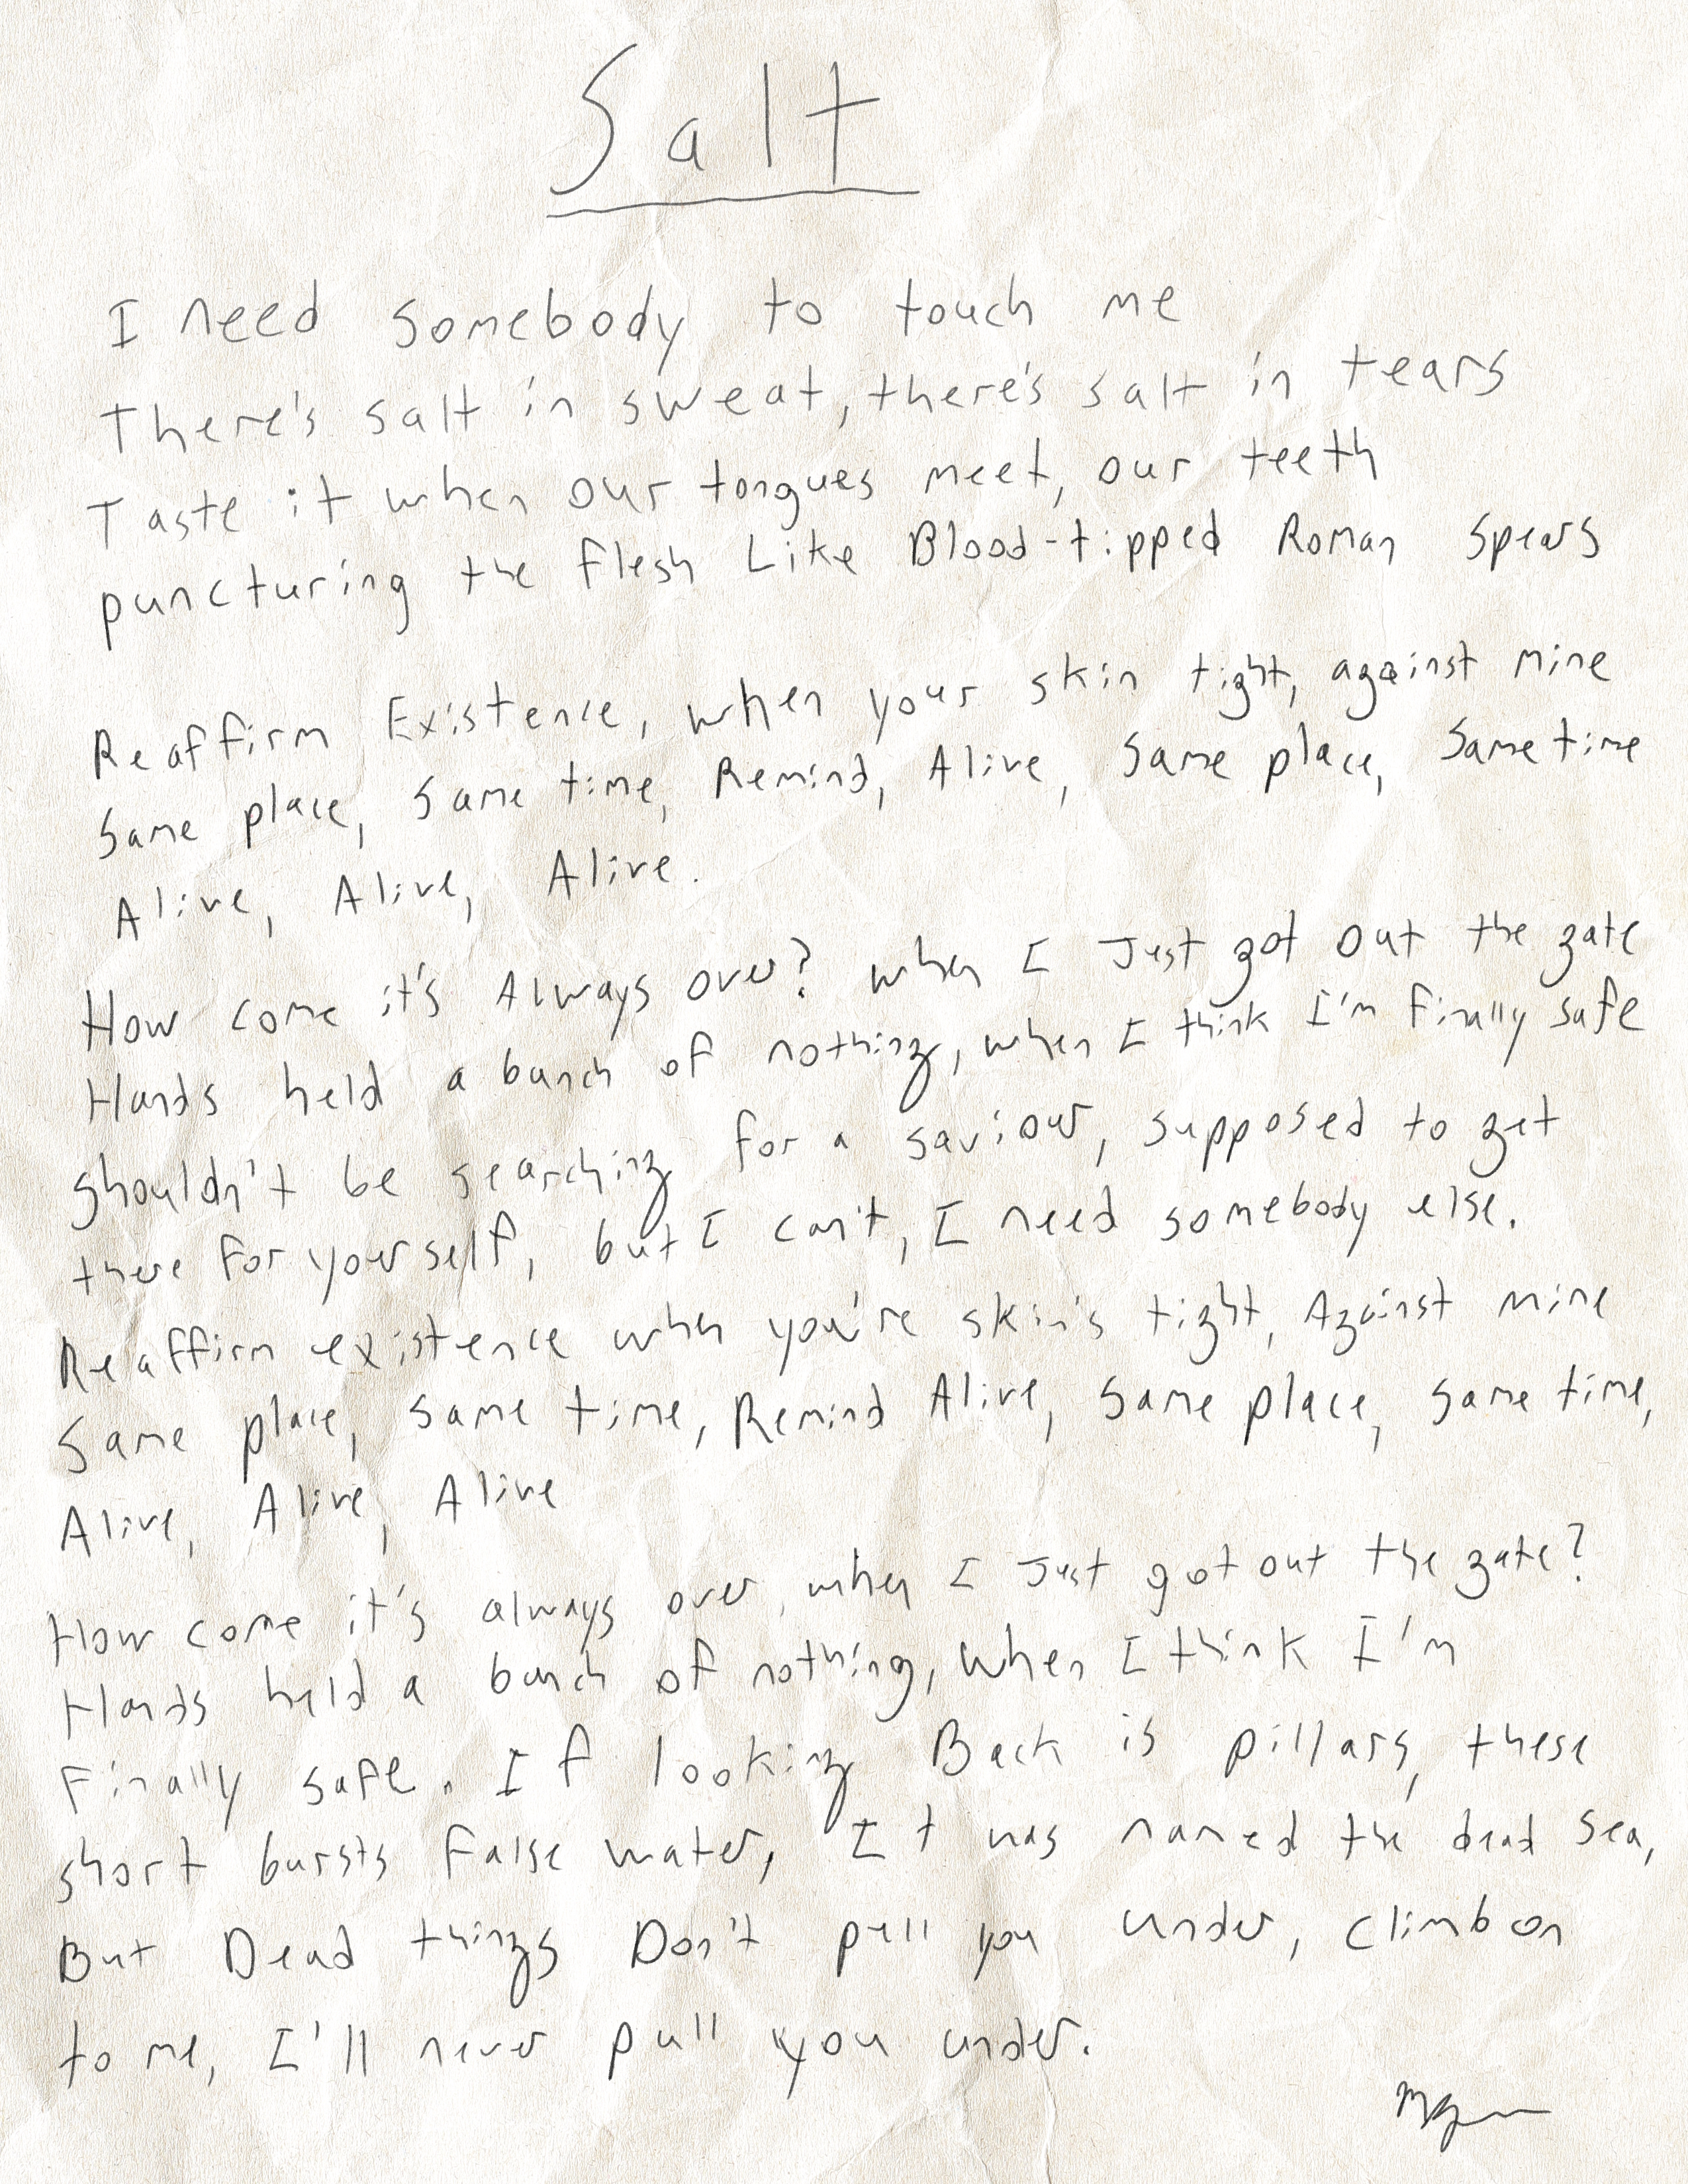 Salt
I need somebody to touch me
There's salt in sweat, there's salt in tears
Taste it when our tongues meet, our teeth
puncturing the flesh Like Blood-tipped Roman spears
Reaffirm Existence, when your skin tight, against mine
Same place, same time, Remind, Alive, Same place, Same time
Alive, Alive, Alive.
How come it's Always over? when I Just got out the gate
Hands held a bunch of nothing, when I think I'm finally safe
shouldn't be searching for a saviour, supposed to get
there for yourself, but I can't, I need somebody else.
Reaffirm existence when you're skin's tight, Against mine
Same place, same time, Remind Alive, same place, same time,
Alive, Alive, Alive
How come it's always over, when I Just got out the gate?
Hands held a bunch of nothing, when I think I'm
Finally safe. If looking Back is pillars, these
short bursts false water, It was named the dead sea,
But Dead things Don't pull you under, climb on
to me, I'll never pull you under.